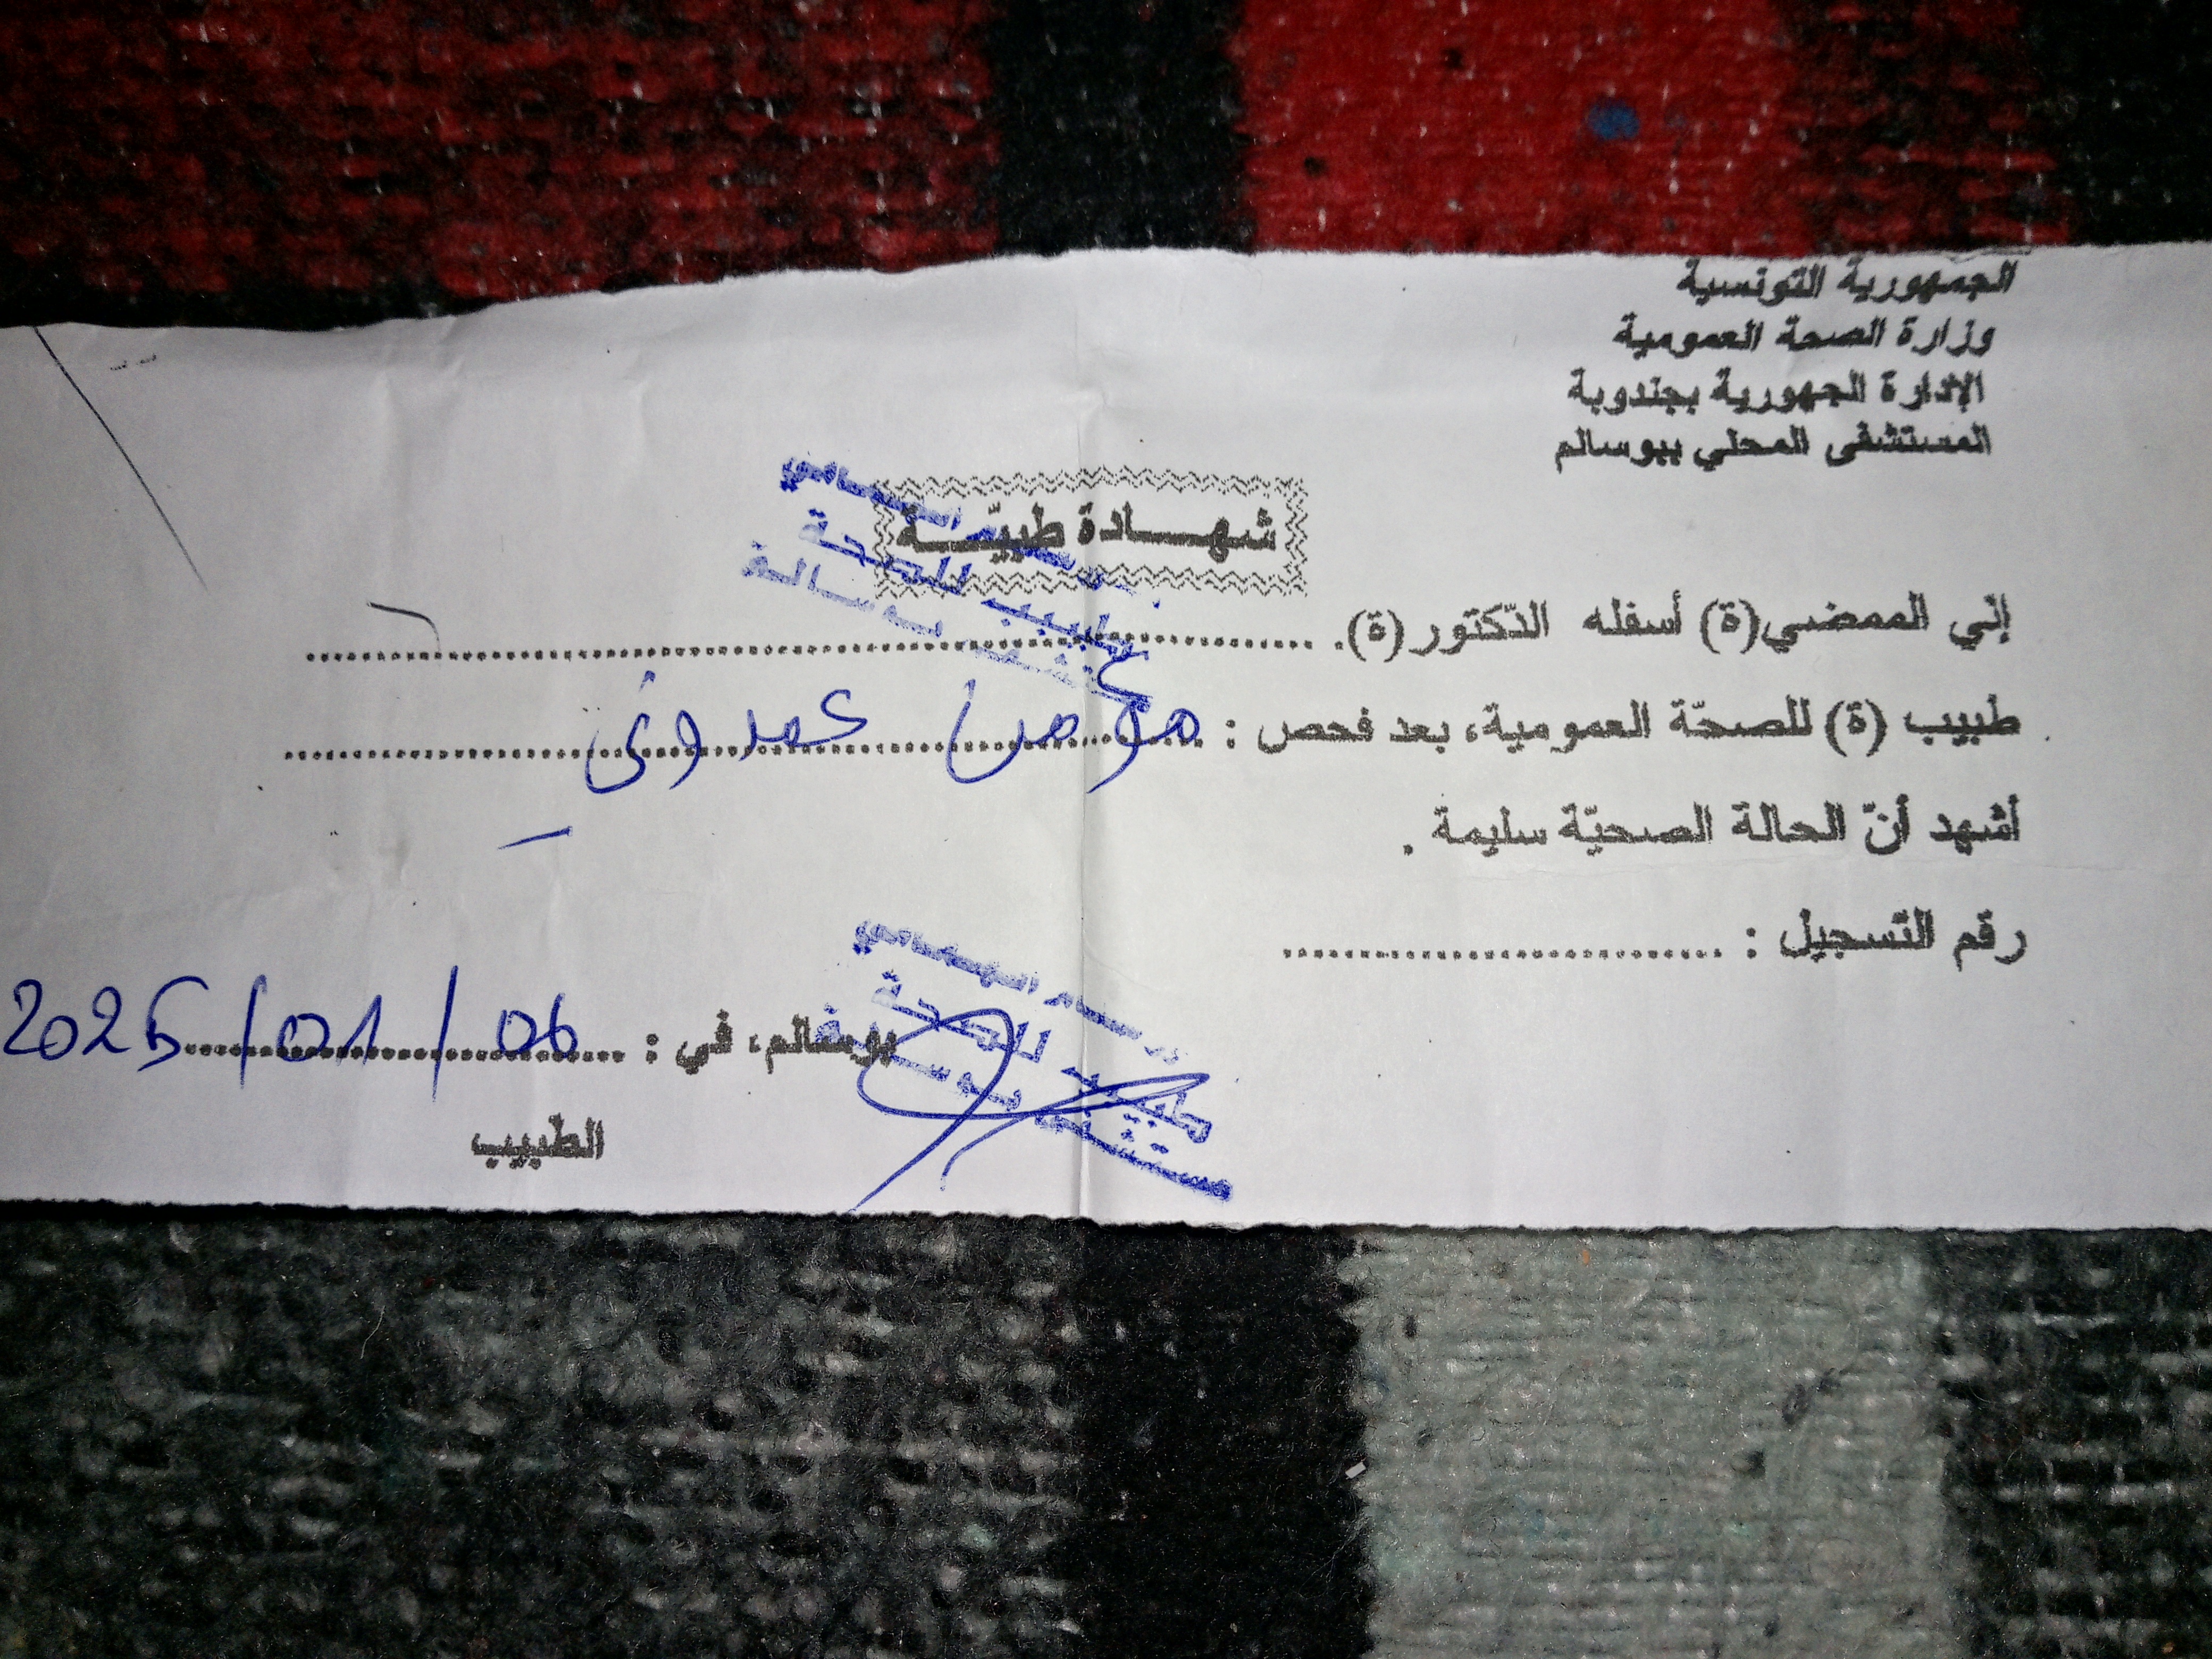 الجمهورية التونسية
وزارة الصحة العمومية
الإدارة الجهورية بجندوبة
المستشفى المحلي ببوسالم
شهـــادة طبيّـــة
إني الممضي(ة) أسفله الدّكتور(ة). ........................
طبيب (ة) للصحّة العمومية، بعد فحص :
أشهد أنّ الحالة الصحيّة سليمة .
رقم التّسجيل : ........................
بوسالم، في : 06 / 01 / 2025
طبيب للصحة
الطّبيب